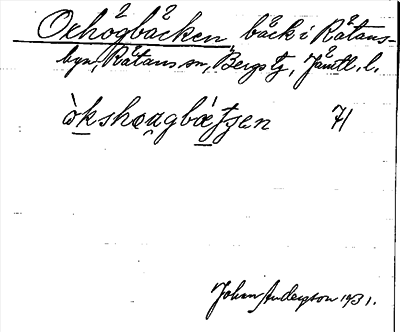 Oxhögbäcken, bäck i Rätans-
byn, Rätans sn, Bergs tg, Jämtl. l.
òkshœ̨gbæ̀tʃen 71
Johan Anderson 1931.